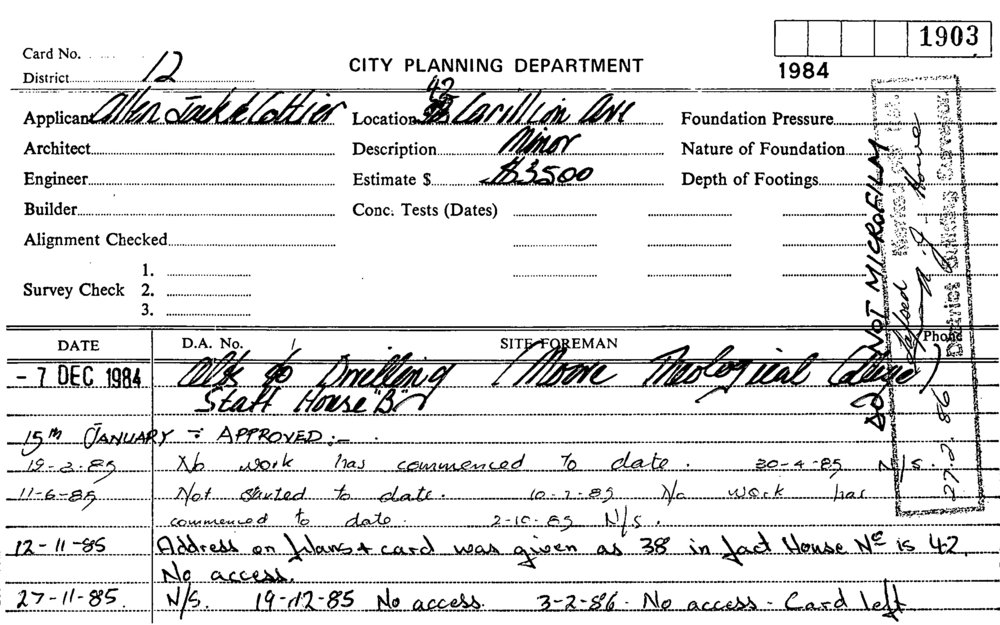 1903
Card No.
1984
District 12
CITY PLANNING DEPARTMENT
Applicant Allen Jack & Cottier
Location 42 Carillion Ave
Foundation Pressure
Architect
Description Minor
Nature of Foundation
Engineer
Estimate $ $3500
Depth of Footings
Builder
Conc. Tests (Dates)
Alignment Checked
Survey Check 1.
2.
3.
DO NOT MICROFILM
District Building Surveyor
27.2.86
DATE D.A. No. SITE FOREMAN Phone
- 7 DEC 1984 Alts to Dwelling (Moore Theological College)
Staff House "B"
15TH JANUARY - APPROVED :-
19-2-85 No work has commenced to date. 30-4-85 N/S.
11-6-85 Not started to date. 10-7-85 No work has
commenced to date. 2-10-85 N/S.
12-11-85 Address on plans + card was given as 38 in fact House No is 42.
No access.
27-11-85. N/S. 19-12-85 No access. 3-2-86 - No access - Card left